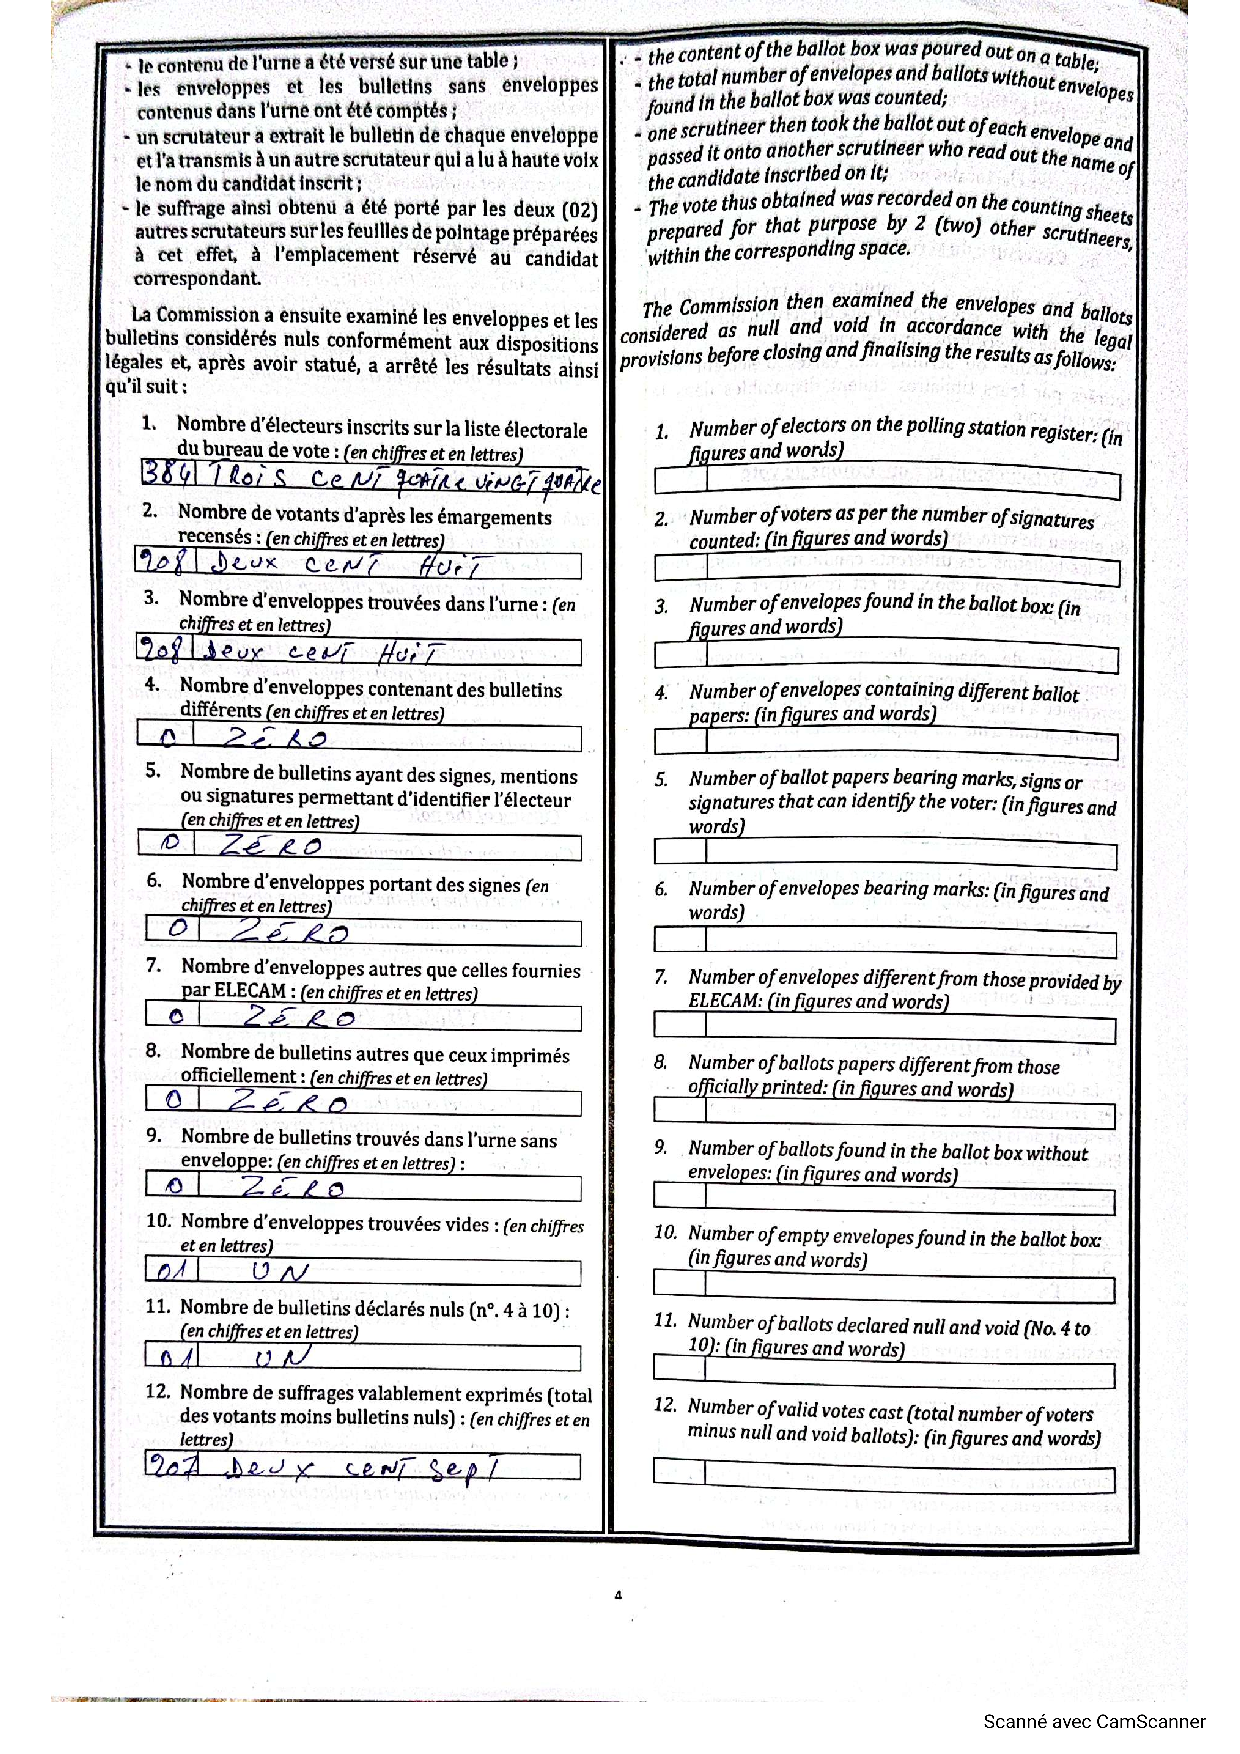 - le contenu de l'urne a été versé sur une table ;
- les enveloppes et les bulletins sans enveloppes
contenus dans l'urne ont été comptés ;
- un scrutateur a extrait le bulletin de chaque enveloppe
et l'a transmis à un autre scrutateur qui a lu à haute voix
le nom du candidat inscrit ;
- le suffrage ainsi obtenu a été porté par les deux (02)
autres scrutateurs sur les feuilles de pointage préparées
à cet effet, à l'emplacement réservé au candidat
correspondant.
La Commission a ensuite examiné les enveloppes et les
bulletins considérés nuls conformément aux dispositions
légales et, après avoir statué, a arrêté les résultats ainsi
qu'il suit :
1. Nombre d'électeurs inscrits sur la liste électorale
du bureau de vote : (en chiffres et en lettres)
384 TROIS CENT QUATRE VINGT QUATRE
2. Nombre de votants d'après les émargements
recensés : (en chiffres et en lettres)
208 DEUX CENT HUIT
3. Nombre d'enveloppes trouvées dans l'urne : (en
chiffres et en lettres)
208 DEUX CENT HUIT
4. Nombre d'enveloppes contenant des bulletins
différents (en chiffres et en lettres)
0 ZÉRO
5. Nombre de bulletins ayant des signes, mentions
ou signatures permettant d'identifier l'électeur
(en chiffres et en lettres)
0 ZÉRO
6. Nombre d'enveloppes portant des signes (en
chiffres et en lettres)
0 ZÉRO
7. Nombre d'enveloppes autres que celles fournies
par ELECAM : (en chiffres et en lettres)
0 ZÉRO
8. Nombre de bulletins autres que ceux imprimés
officiellement : (en chiffres et en lettres)
0 ZÉRO
9. Nombre de bulletins trouvés dans l'urne sans
enveloppe: (en chiffres et en lettres) :
0 ZÉRO
10. Nombre d'enveloppes trouvées vides : (en chiffres
et en lettres)
01 UN
11. Nombre de bulletins déclarés nuls (n°. 4 à 10) :
(en chiffres et en lettres)
01 UN
12. Nombre de suffrages valablement exprimés (total
des votants moins bulletins nuls) : (en chiffres et en
lettres)
207 DEUX CENT SEPT
- the content of the ballot box was poured out on a table;
- the total number of envelopes and ballots without envelopes
found in the ballot box was counted;
- one scrutineer then took the ballot out of each envelope and
passed it onto another scrutineer who read out the name of
the candidate inscribed on it;
- The vote thus obtained was recorded on the counting sheets
prepared for that purpose by 2 (two) other scrutineers,
within the corresponding space.
The Commission then examined the envelopes and ballots
considered as null and void in accordance with the legal
provisions before closing and finalising the results as follows:
1. Number of electors on the polling station register: (in
figures and words)
2. Number of voters as per the number of signatures
counted: (in figures and words)
3. Number of envelopes found in the ballot box: (in
figures and words)
4. Number of envelopes containing different ballot
papers: (in figures and words)
5. Number of ballot papers bearing marks, signs or
signatures that can identify the voter: (in figures and
words)
6. Number of envelopes bearing marks: (in figures and
words)
7. Number of envelopes different from those provided by
ELECAM: (in figures and words)
8. Number of ballots papers different from those
officially printed: (in figures and words)
9. Number of ballots found in the ballot box without
envelopes: (in figures and words)
10. Number of empty envelopes found in the ballot box:
(in figures and words)
11. Number of ballots declared null and void (No. 4 to
10): (in figures and words)
12. Number of valid votes cast (total number of voters
minus null and void ballots): (in figures and words)
4
Scanné avec CamScanner